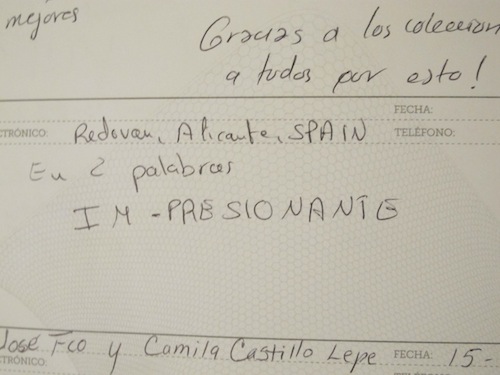 mejores
Gracias a los coleccion
a todos por esto!
FECHA:
CTRÓNICO: Redovan, Alicante, SPAIN TELÉFONO:
En 2 palabras
IM-PRESIONANTE
José Fco y Camila Castillo Lepe FECHA: 15-
CTRÓNICO: TELÉFONO: